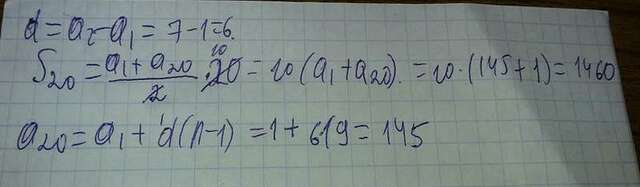 d = a₂ - a₁ = 7 - 1 = 6.
S₂₀ = (a₁ + a₂₀)/2 · 20 10 = 10(a₁ + a₂₀). = 10 · (145 + 1) = 1460
a₂₀ = a₁ + d(n-1) = 1 + 619 = 145